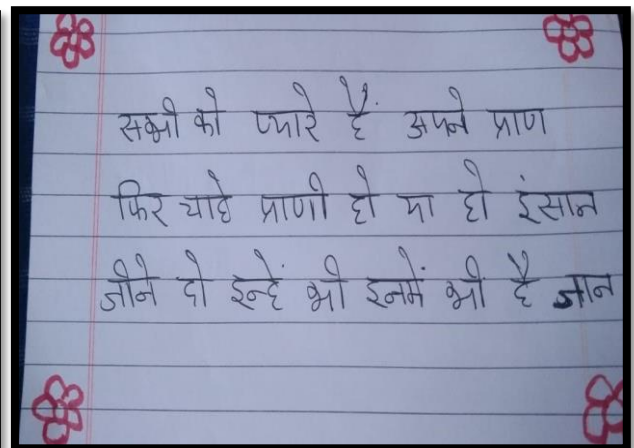 सभी को प्यारे हैं अपने प्राण
फिर चाहे प्राणी हो या हो इंसान
जीने दो इन्हें भी इनमें भी है जान